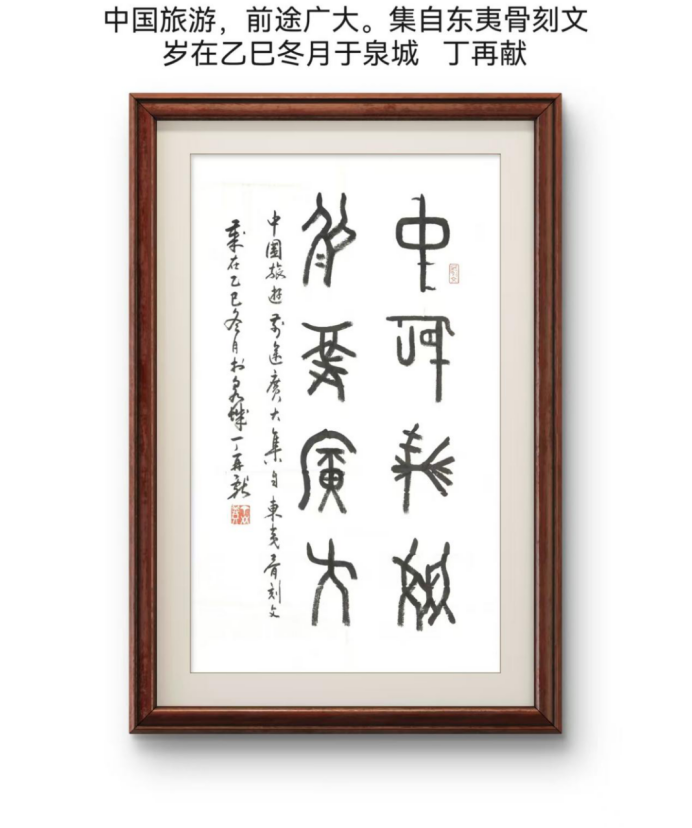 中国旅游，前途广大。集自东夷骨刻文
岁在乙巳冬月于泉城 丁再献
中或旅游
前途廣大
中國旅遊前途廣大集自東夷骨刻文
歲在乙巳冬月於泉城丁再獻